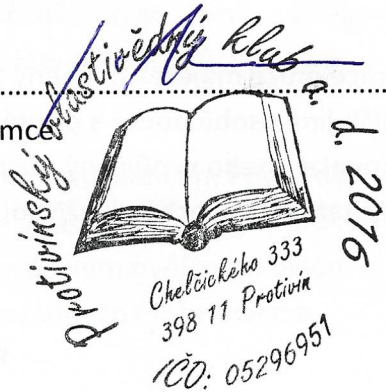 Protivínský vlastivědný klub a. d. 2016
mce
Chelčického 333
398 11 Protivín
IČO: 05296951